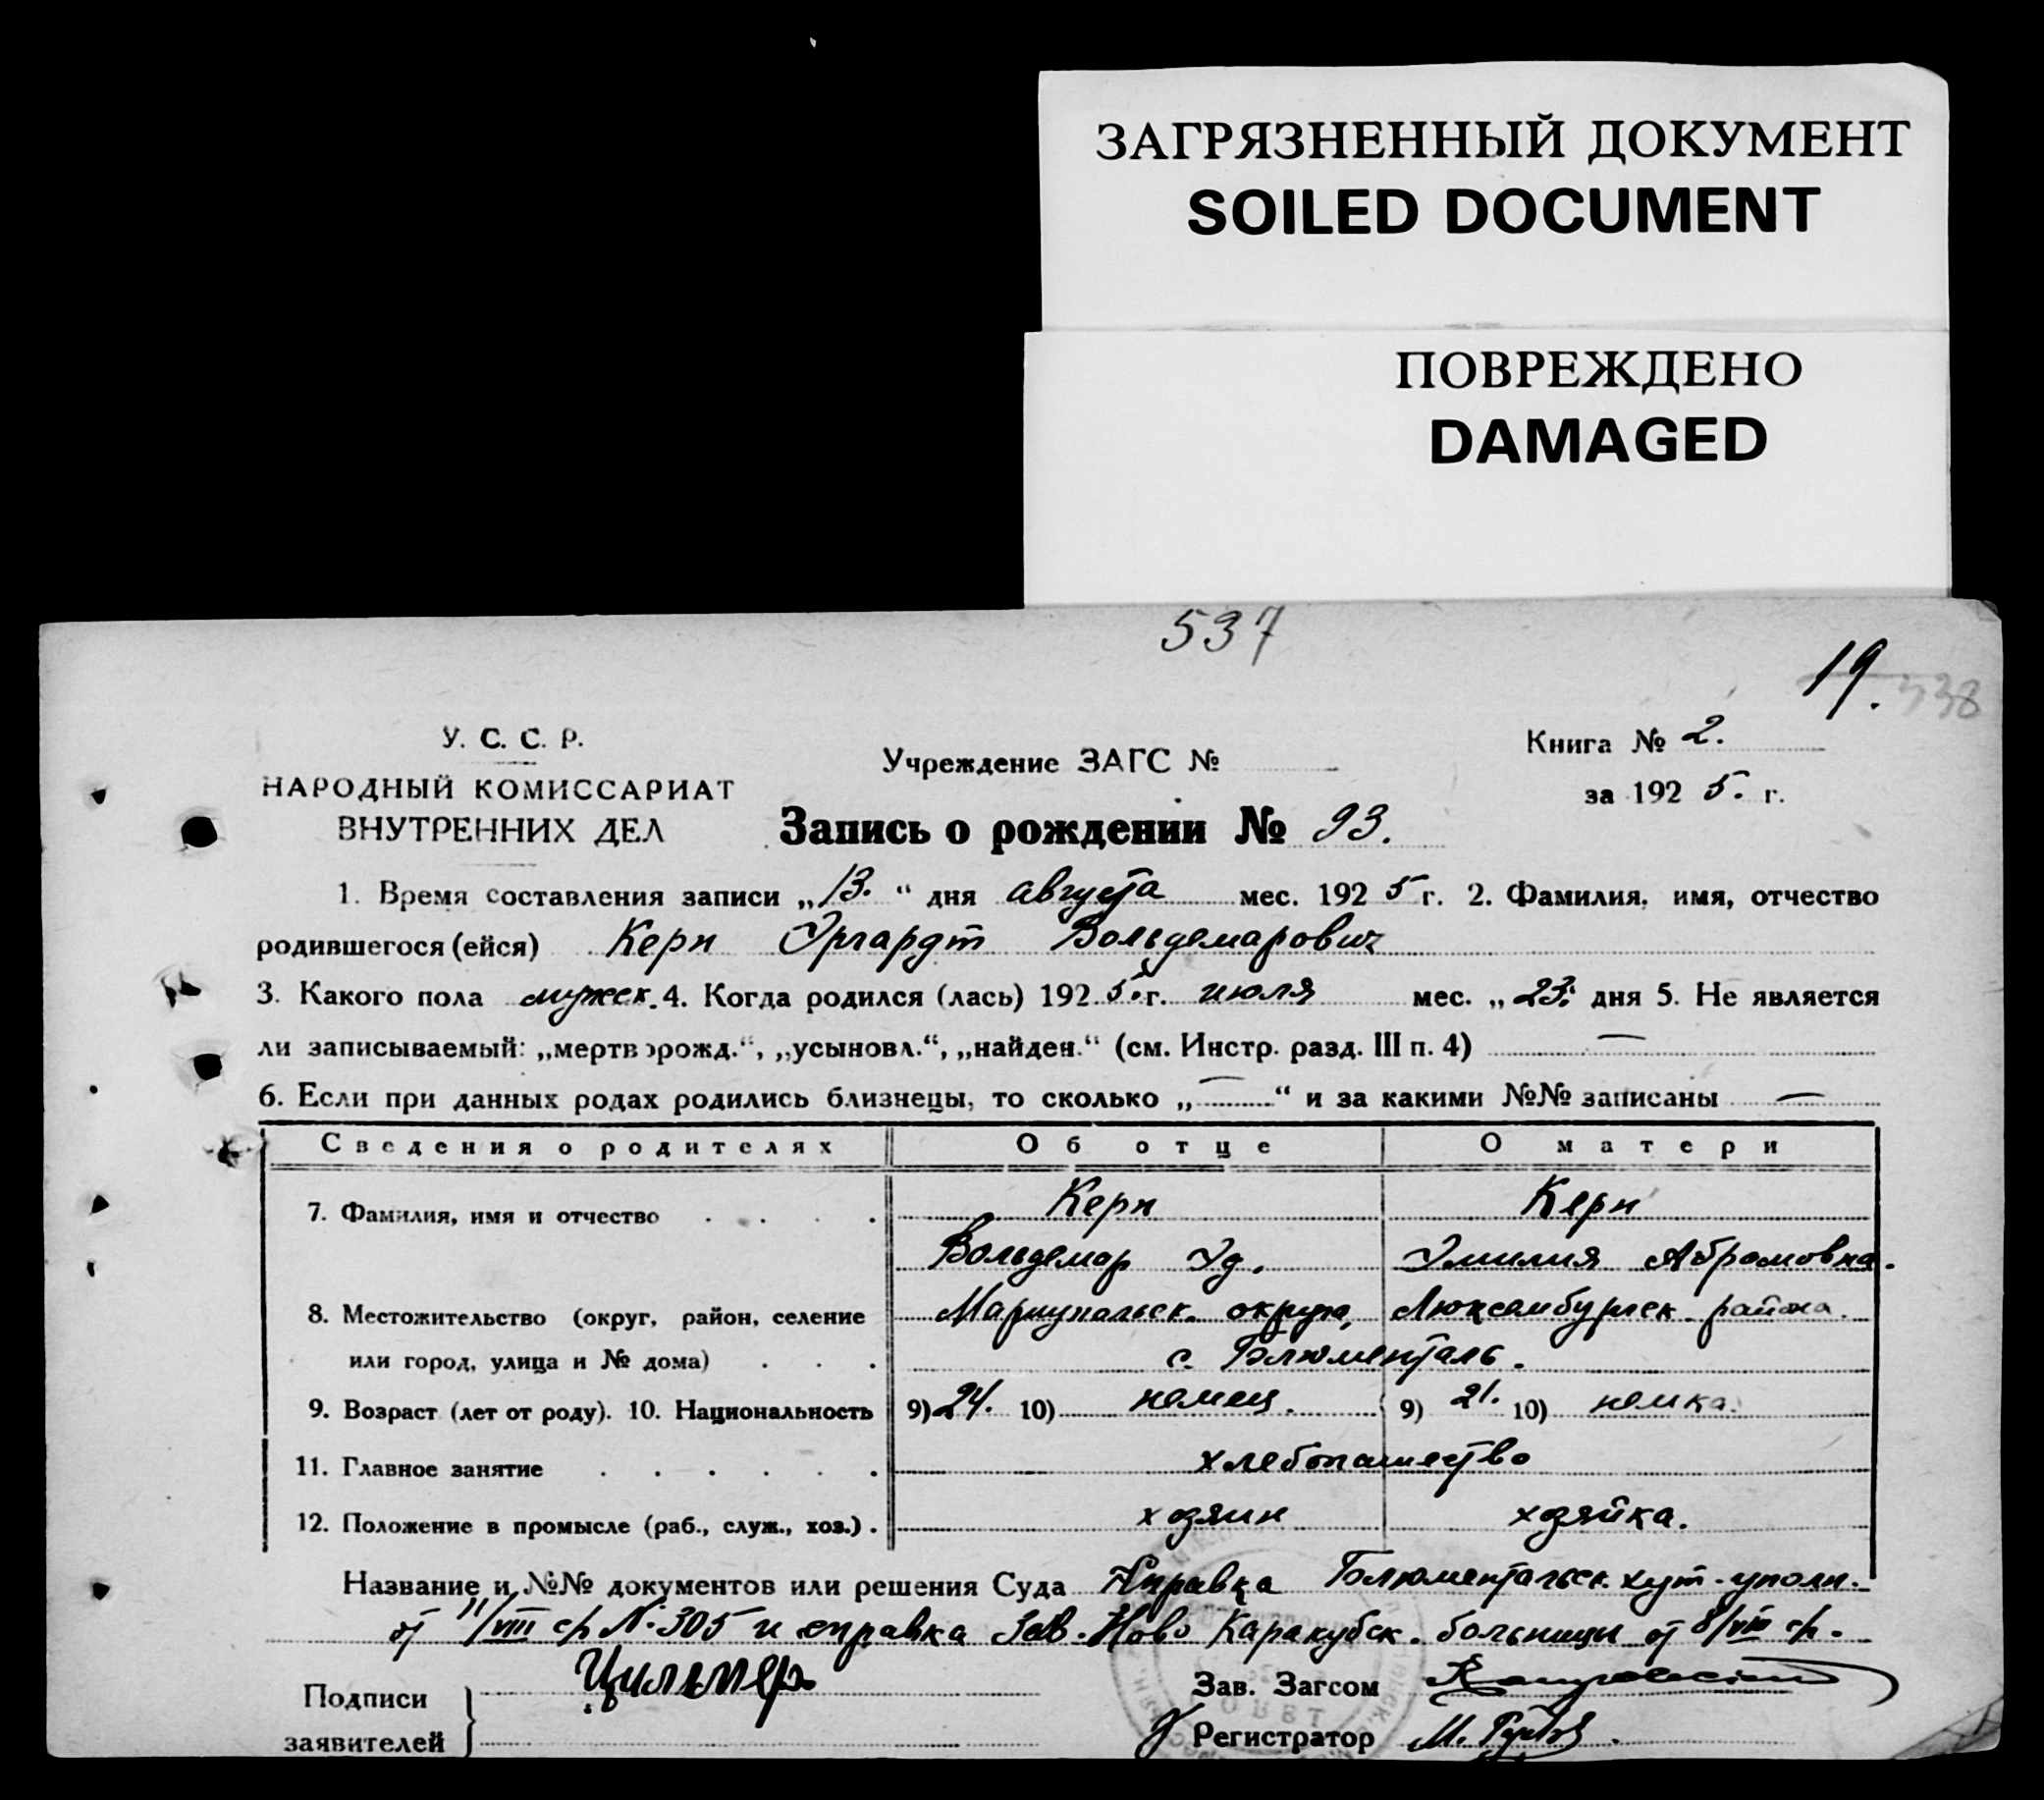 ЗАГРЯЗНЕННЫЙ ДОКУМЕНТ
SOILED DOCUMENT
ПОВРЕЖДЕНО
DAMAGED
537
19. 538
У. С. С. Р.
НАРОДНЫЙ КОМИССАРИАТ
ВНУТРЕННИХ ДЕЛ
Учреждение ЗАГС №
Книга № 2.
за 1925. г.
Запись о рождении № 93.
1. Время составления записи „13.“ дня августа мес. 1925 г. 2. Фамилия, имя, отчество
родившегося (ейся) Керн Эргардт Вольдемарович
3. Какого пола мужск. 4. Когда родился (лась) 1925. г. июля мес. „23. дня 5. Не является
ли записываемый: „мертворожд.“, „усыновл.“, „найден.“ (см. Инстр. разд. III п. 4) —
6. Если при данных родах родились близнецы, то сколько „—“ и за какими №№ записаны —
Сведения о родителях Об отце О матери
7. Фамилия, имя и отчество . . . . Керн Керн
Вольдемар Эд. Эмилия Абрамовна.
8. Местожительство (округ, район, селение Мариупольск. округа, Люксембургск. района.
или город, улица и № дома) . . . с. Блюменталь.
9. Возраст (лет от роду). 10. Национальность 9) 24. 10) немец. 9) 21. 10) немка.
11. Главное занятие . . . . . . хлебопашество
12. Положение в промысле (раб., служ., хоз.) . хозяин хозяйка.
Название и №№ документов или решения Суда Справка Блюментальск. хут. уполн.
от 11/VIII с/г №. 305 и справка Зав. Ново Каракубск. больницы от 8/VIII с/г.
Подписи
заявителей
Цильмер
Зав. Загсом
Регистратор М.